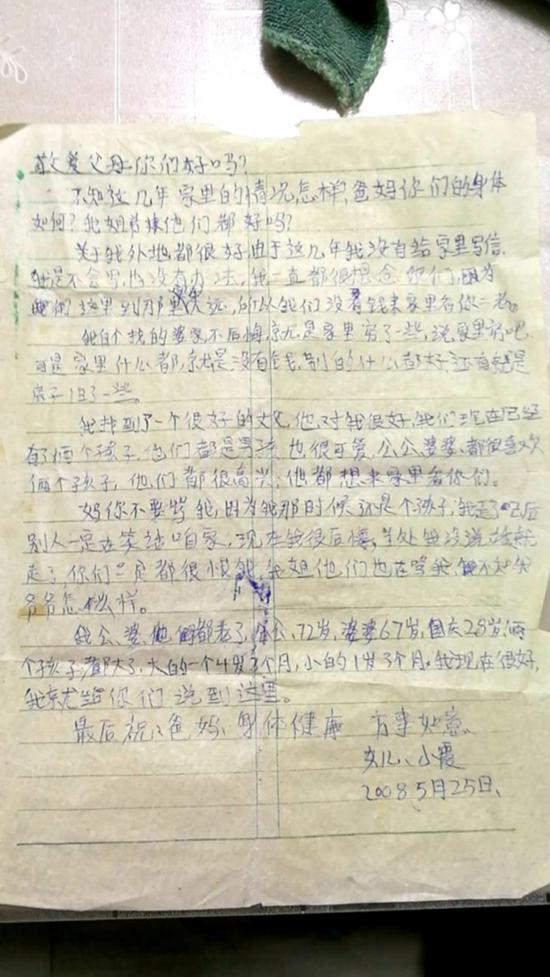 敬爱父母你们好吗?
不知这几年家里的情况怎样,爸妈你们的身体
如何?我姐 他们都好吗?
关于我外地都很好,由于这几年我没有给家里写信,
我是不会写,也没有办法,我一直都很想念你们,因为
这里到那里太远,所以我们没有钱来家里看你二老。
我自个找的婆家,不后悔,就是家里穷了一些,说家里穷吧
可是家里什么都,就是没有钱,别的什么都好,还有就是
房子旧了一些。
我找到了一个很好的丈夫,他对我很好,我们现在已经
有俩个孩子,他们都是男孩,也很可爱,公公婆婆都很喜欢
俩个孩子,他们都很高兴,他都想来家里看你们。
妈你不要骂我,因为我那时候还是个孩子,我走了已后
别人一定在笑话咱家,现在我很后悔,当处我没说 就
走了,你们一定都很恨我,我姐他们也在骂我,但不知我
爷爷怎么样。
我公、婆他俩都老了,公公72岁,婆婆67岁,国庆28岁,俩
个孩子都大了,大的一个4岁3个月,小的1岁3个月。我现在很好,
我就给你们说到这里。
最后祝:爸妈、身体健康 万事如意、
女儿、小霞
2008 5月25日、